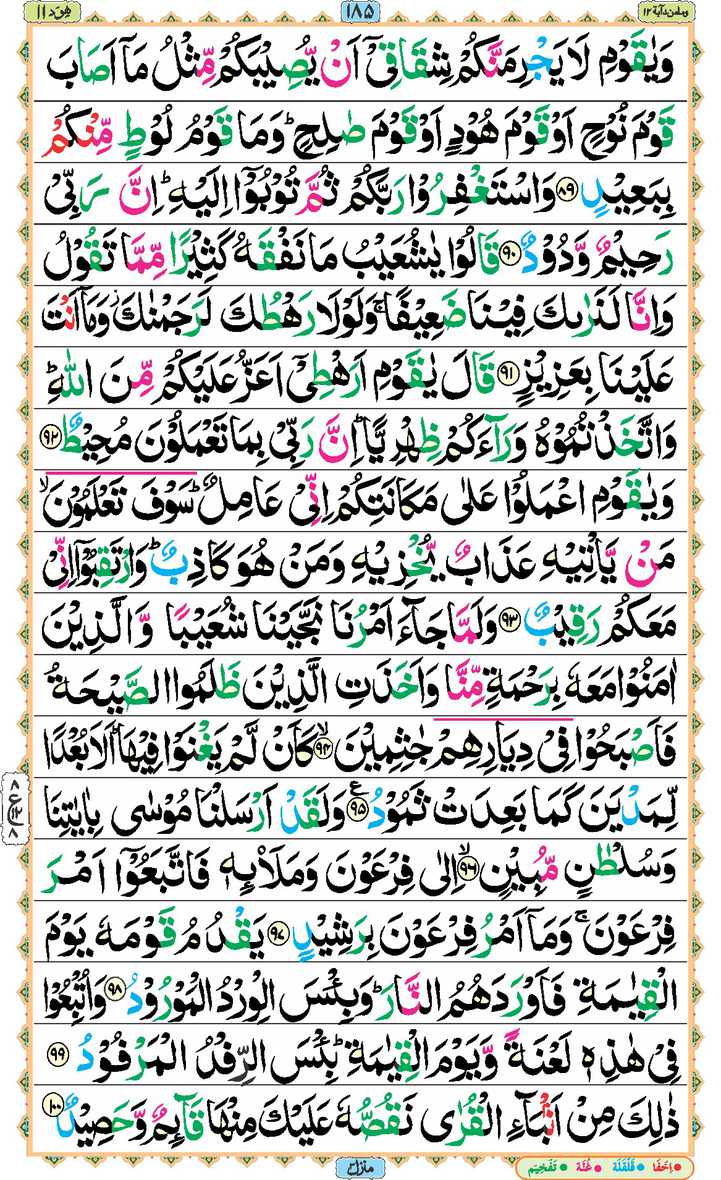 ومامن دآبة ۱۲ ۱۸۵ هود ۱۱
وَيٰقَوۡمِ لَا يَجۡرِمَنَّكُمۡ شِقَاقِىۡۤ اَنۡ يُّصِيۡبَكُمۡ مِّثۡلُ مَاۤ اَصَابَ
قَوۡمَ نُوۡحٍ اَوۡ قَوۡمَ هُوۡدٍ اَوۡ قَوۡمَ صٰلِحٍ‌ ؕ وَمَا قَوۡمُ لُوۡطٍ مِّنۡكُمۡ
بِبَعِيۡدٍ ۸۹ وَاسۡتَغۡفِرُوۡا رَبَّكُمۡ ثُمَّ تُوۡبُوۡۤا اِلَيۡهِ‌ؕ اِنَّ رَبِّىۡ
رَحِيۡمٌ وَّدُوۡدٌ ۹۰ قَالُوۡا يٰشُعَيۡبُ مَا نَفۡقَهُ كَثِيۡرًا مِّمَّا تَقُوۡلُ
وَاِنَّا لَـنَرٰٮكَ فِيۡنَا ضَعِيۡفًا‌ ۚ وَلَوۡلَا رَهۡطُكَ لَرَجَمۡنٰكَ‌ وَمَاۤ اَنۡتَ
عَلَيۡنَا بِعَزِيۡزٍ ۹۱ قَالَ يٰقَوۡمِ اَرَهۡطِىۡۤ اَعَزُّ عَلَيۡكُمۡ مِّنَ اللّٰهِ ؕ
وَ اتَّخَذۡتُمُوۡهُ وَرَآءَكُمۡ ظِهۡرِيًّا‌ ؕ اِنَّ رَبِّىۡ بِمَا تَعۡمَلُوۡنَ مُحِيۡطٌ ۹۲
وَيٰقَوۡمِ اعۡمَلُوۡا عَلٰى مَكَانَتِكُمۡ اِنِّىۡ عَامِلٌ‌ ؕ سَوۡفَ تَعۡلَمُوۡنَ ۙ
مَنۡ يَّاۡتِيۡهِ عَذَابٌ يُّخۡزِيۡهِ وَمَنۡ هُوَ كَاذِبٌ‌ ؕ وَارۡتَقِبُوۡۤا اِنِّىۡ
مَعَكُمۡ رَقِيۡبٌ ۹۳ وَلَمَّا جَآءَ اَمۡرُنَا نَجَّيۡنَا شُعَيۡبًا وَّالَّذِيۡنَ
اٰمَنُوۡا مَعَهٗ بِرَحۡمَةٍ مِّنَّا وَاَخَذَتِ الَّذِيۡنَ ظَلَمُوا الصَّيۡحَةُ
فَاَصۡبَحُوۡا فِىۡ دِيَارِهِمۡ جٰثِمِيۡنَۙ‏ ۹۴ كَاَنۡ لَّمۡ يَغۡنَوۡا فِيۡهَا‌ ؕ اَلَا بُعۡدًا
لِّمَدۡيَنَ كَمَا بَعِدَتۡ ثَمُوۡدُ ۹۵ ع وَلَـقَدۡ اَرۡسَلۡنَا مُوۡسٰى بِاٰيٰتِنَا
وَسُلۡطٰنٍ مُّبِيۡنٍۙ ۹۶ اِلٰى فِرۡعَوۡنَ وَمَلَا۟ئِهٖ فَاتَّبَعُوۡۤا اَمۡرَ
فِرۡعَوۡنَ‌ ۚ وَمَاۤ اَمۡرُ فِرۡعَوۡنَ بِرَشِيۡدٍ ۹۷ يَقۡدُمُ قَوۡمَهٗ يَوۡمَ
الۡقِيٰمَةِ فَاَوۡرَدَهُمُ النَّارَ‌ؕ وَبِئۡسَ الۡوِرۡدُ الۡمَوۡرُوۡدُ ۹۸ وَاُتۡبِعُوۡا
فِىۡ هٰذِهٖ لَـعۡنَةً وَّيَوۡمَ الۡقِيٰمَةِ‌ؕ بِئۡسَ الرِّفۡدُ الۡمَرۡفُوۡدُ ۹۹
ذٰلِكَ مِنۡ اَنۡۢبَآءِ الۡـقُرٰى نَقُصُّهٗ عَلَيۡكَ مِنۡهَا قَآئِمٌ وَّحَصِيۡدٌ ۱۰۰
۸ ع ۱۲ ۸
منزل ۳
اِخفَا قَلْقَلَة غُنَّة تَفْخِيْم